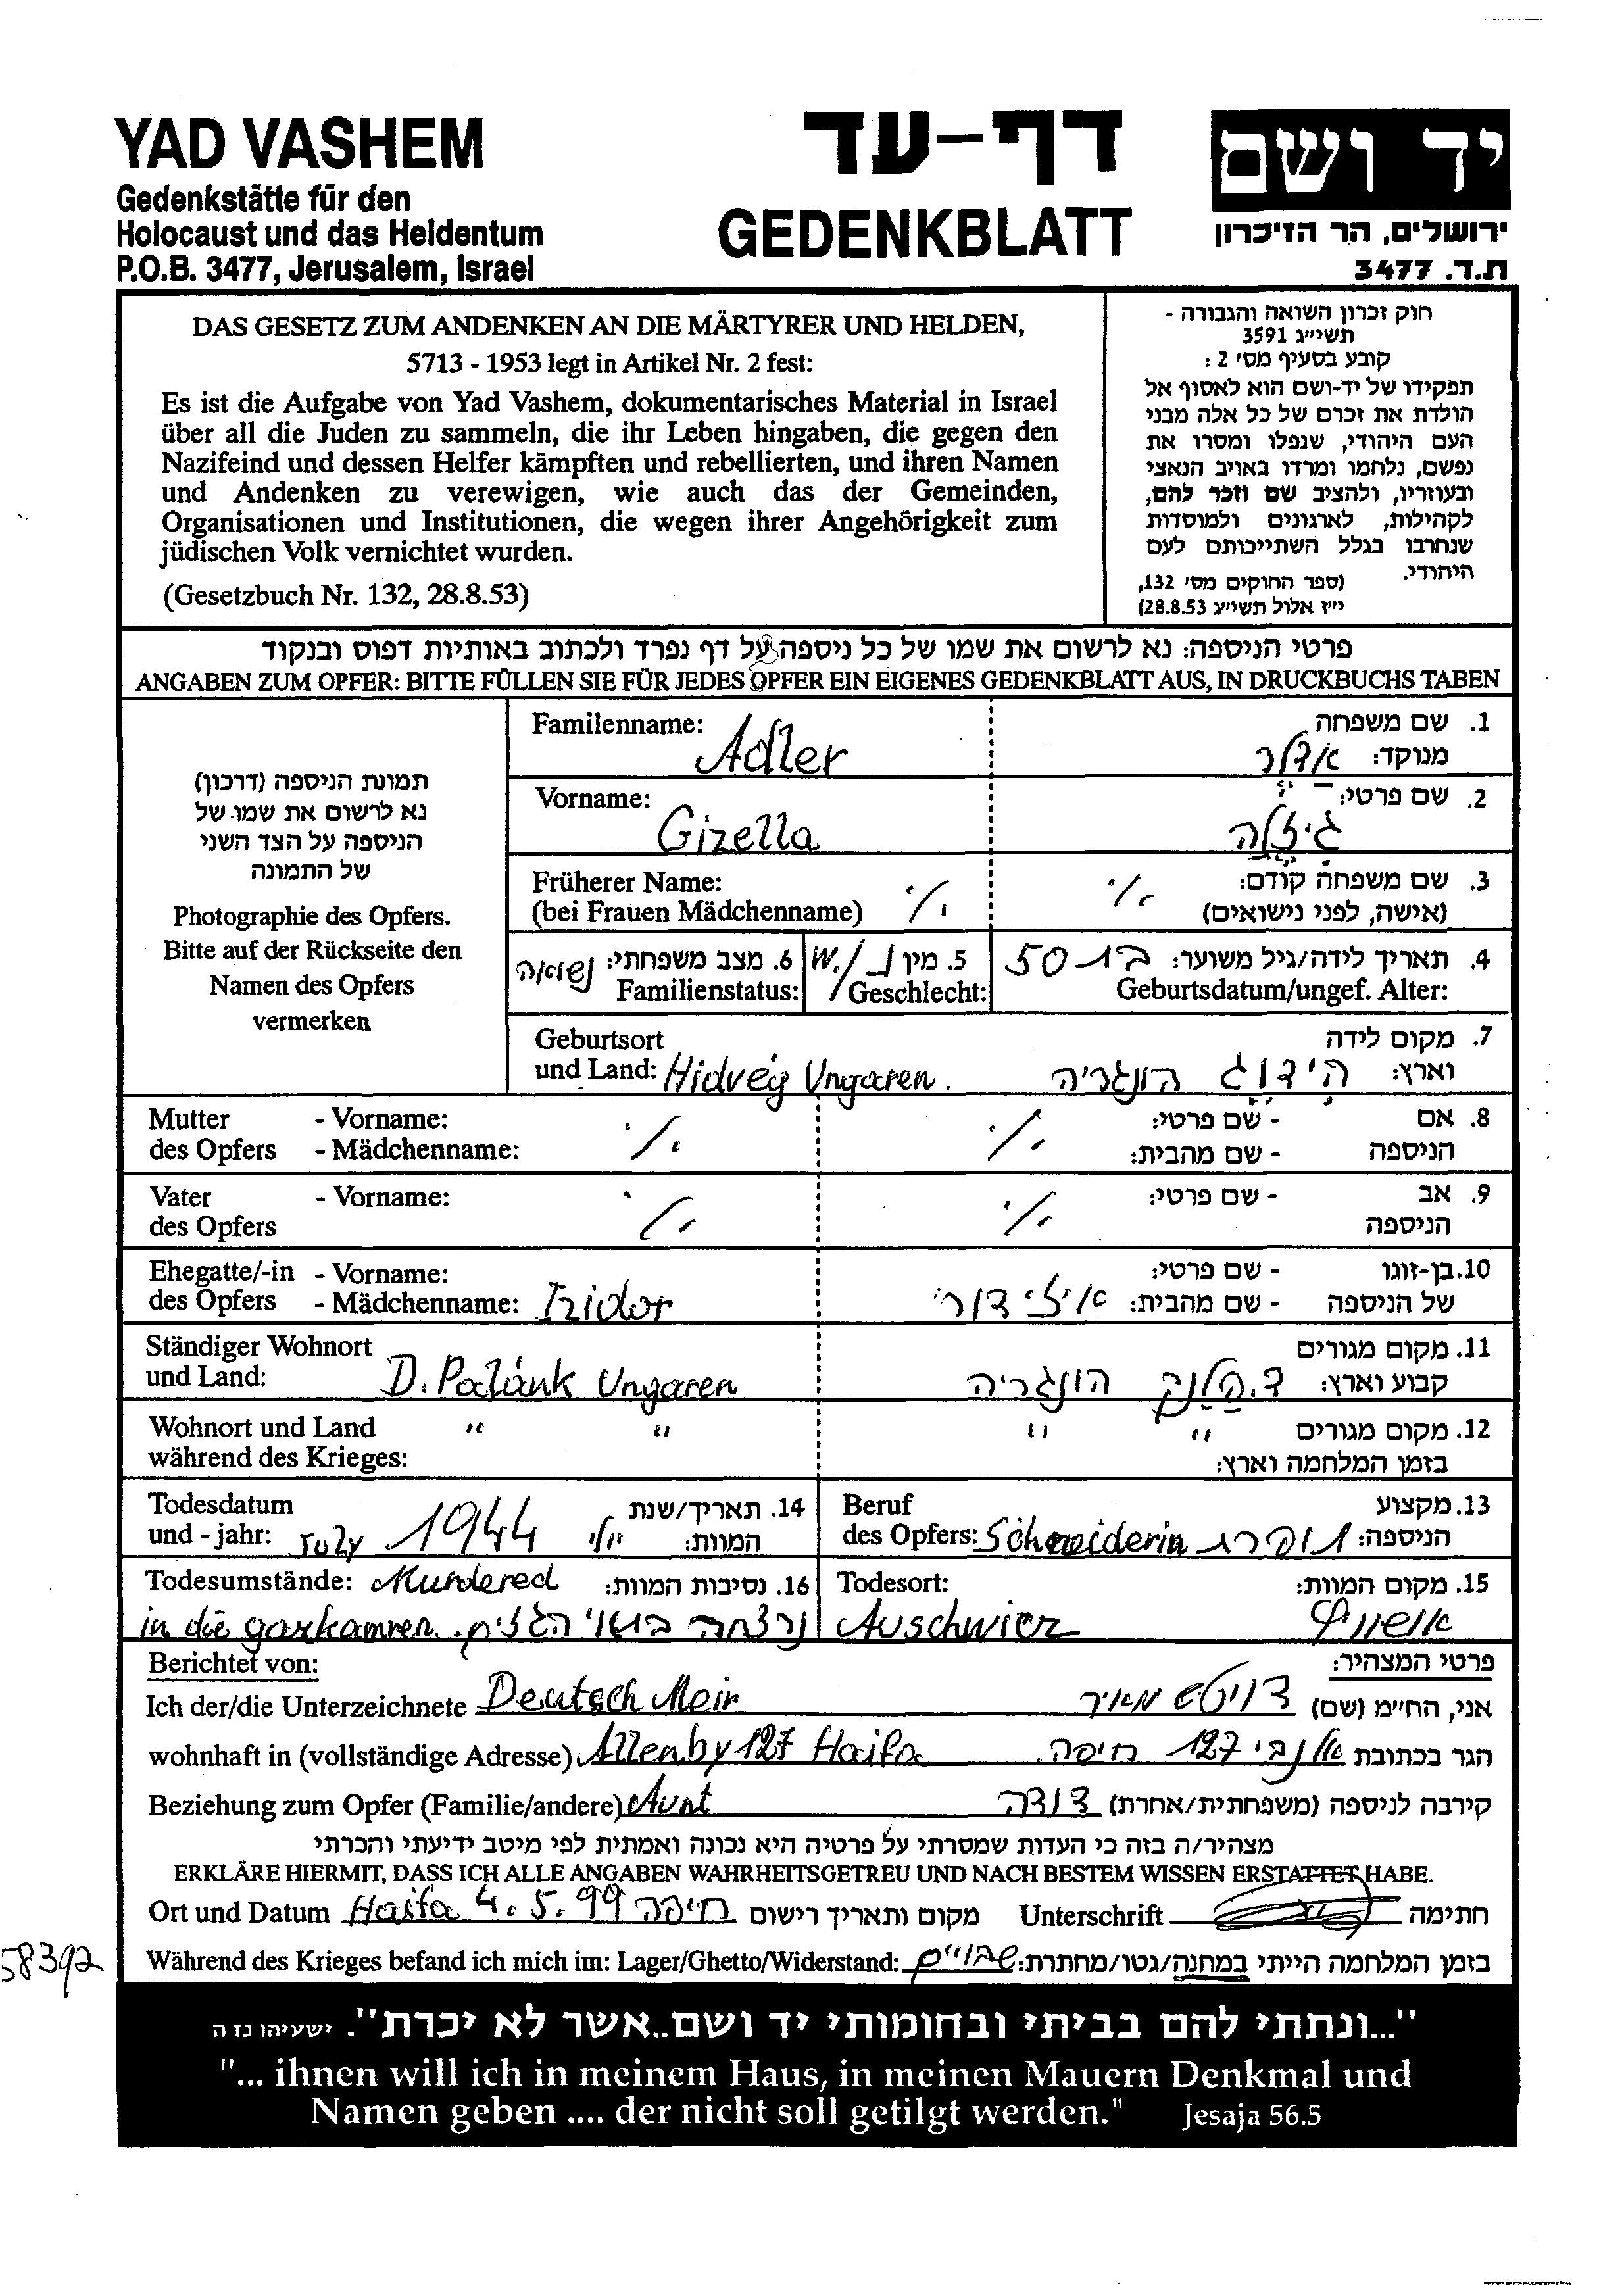 YAD VASHEM
Gedenkstätte für den
Holocaust und das Heldentum
P.O.B. 3477, Jerusalem, Israel
דף-עד
GEDENKBLATT
יד ושם
ירושלים, הר הזיכרון
ת.ד. 3477
DAS GESETZ ZUM ANDENKEN AN DIE MÄRTYRER UND HELDEN,
5713 - 1953 legt in Artikel Nr. 2 fest:
Es ist die Aufgabe von Yad Vashem, dokumentarisches Material in Israel
über all die Juden zu sammeln, die ihr Leben hingaben, die gegen den
Nazifeind und dessen Helfer kämpften und rebellierten, und ihren Namen
und Andenken zu verewigen, wie auch das der Gemeinden,
Organisationen und Institutionen, die wegen ihrer Angehörigkeit zum
jüdischen Volk vernichtet wurden.
(Gesetzbuch Nr. 132, 28.8.53)
חוק זכרון השואה והגבורה -
תשי״ג 3591
קובע בסעיף מס׳ 2 :
תפקידו של יד-ושם הוא לאסוף אל
הולדת את זכרם של כל אלה מבני
העם היהודי, שנפלו ומסרו את
נפשם, נלחמו ומרדו באויב הנאצי
ובעוזריו, ולהציב שם וזכר להם,
לקהילות, לארגונים ולמוסדות
שנחרבו בגלל השתייכותם לעם
היהודי. (ספר החוקים מס׳ 132,
י״ז אלול תשי״ג 28.8.53)
פרטי הניספה: נא לרשום את שמו של כל ניספה על דף נפרד ולכתוב באותיות דפוס ובנקוד
ANGABEN ZUM OPFER: BITTE FÜLLEN SIE FÜR JEDES OPFER EIN EIGENES GEDENKBLATT AUS, IN DRUCKBUCHS TABEN
תמונת הניספה (דרכון)
נא לרשום את שמו של
הניספה על הצד השני
של התמונה
Photographie des Opfers.
Bitte auf der Rückseite den
Namen des Opfers
vermerken
Familenname: Adler
1. שם משפחה
מנוקד: אדלר
Vorname: Gizella
2. שם פרטי: גיזלה
Früherer Name:
(bei Frauen Mädchenname) ·/·
3. שם משפחה קודם: ·/·
(אישה, לפני נישואים)
4. תאריך לידה/גיל משוער: כ-50
Geburtsdatum/ungef. Alter:
5. מין נ./W
Geschlecht:
6. מצב משפחתי: נשואה
Familienstatus:
Geburtsort
und Land: Hidvég Ungaren.
7. מקום לידה
וארץ: הידוג הונגריה
Mutter - Vorname:
des Opfers - Mädchenname: ·/·
8. אם - שם פרטי:
הניספה - שם מהבית: ·/·
Vater - Vorname:
des Opfers ·/·
9. אב - שם פרטי:
הניספה ·/·
Ehegatte/-in - Vorname:
des Opfers - Mädchenname: Izidor
10. בן-זוגו - שם פרטי:
של הניספה - שם מהבית: איזידור
Ständiger Wohnort
und Land: D. Palánk Ungaren
11. מקום מגורים
קבוע וארץ: ד. פלנק הונגריה
Wohnort und Land " "
während des Krieges:
12. מקום מגורים " "
בזמן המלחמה וארץ:
Todesdatum
und - jahr: July 1944
14. תאריך/שנת
המוות: יולי
Beruf
des Opfers: Schneiderin
13. מקצוע
הניספה: תופרת
Todesumstände: Murdered
in die gazkamren.
16. נסיבות המוות:
נרצחה בתאי הגזים.
Todesort:
Auschwicz
15. מקום המוות:
אושוויץ
Berichtet von:
פרטי המצהיר:
Ich der/die Unterzeichnete Deutsch Meir
אני, החי״מ (שם) דויטש מאיר
wohnhaft in (vollständige Adresse) Allenby 127 Haifa
הגר בכתובת אלנבי 127 חיפה.
Beziehung zum Opfer (Familie/andere) Aunt
קירבה לניספה (משפחתית/אחרת) דודה
מצהיר/ה בזה כי העדות שמסרתי על פרטיה היא נכונה ואמתית לפי מיטב ידיעתי והכרתי
ERKLÄRE HIERMIT, DASS ICH ALLE ANGABEN WAHRHEITSGETREU UND NACH BESTEM WISSEN ERSTATTET HABE.
Ort und Datum Haifa 4.5.99 חיפה מקום ותאריך רישום
Unterschrift חתימה
58392
Während des Krieges befand ich mich im: Lager/Ghetto/Widerstand:
בזמן המלחמה הייתי במחנה/גטו/מחתרת:
"...ונתתי להם בביתי ובחומותי יד ושם..אשר לא יכרת". ישעיהו נז ה
"... ihnen will ich in meinem Haus, in meinen Mauern Denkmal und
Namen geben .... der nicht soll getilgt werden." Jesaja 56.5